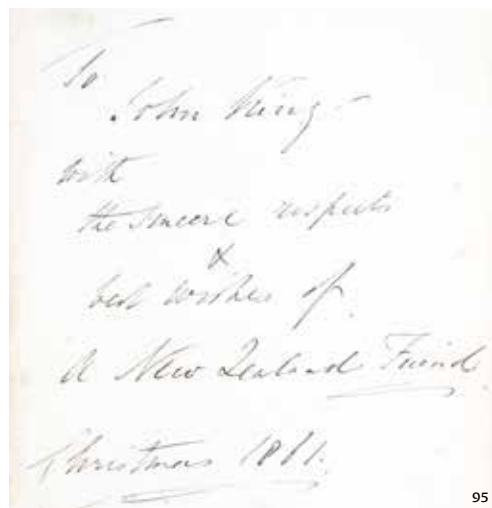 To
John King
with
the sincere respects
&
best wishes of
A New Zealand Friend
Christmas 1861.
95